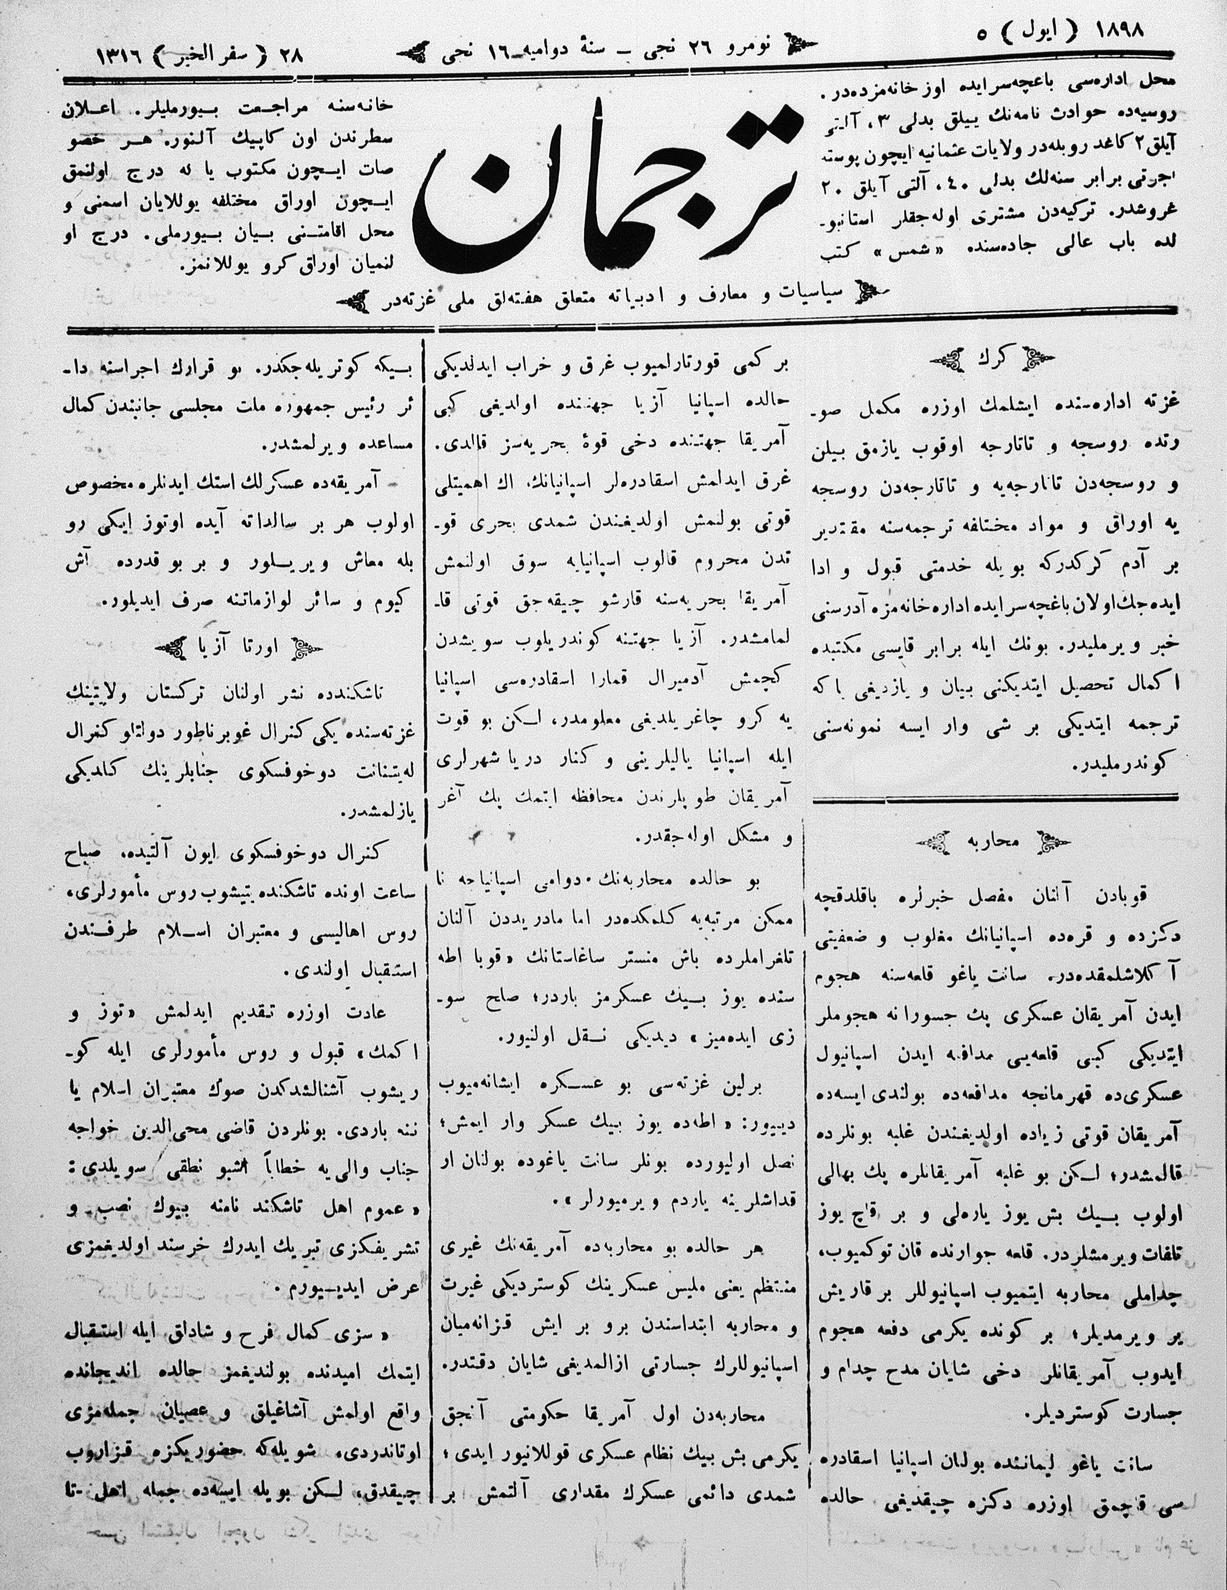 ١٨٩٨ ( ايول ) ٥
نومرو ٢٦ نجى ـ سنهٔ دواميه ـ ١٦ نجى
٢٨ ( سفر الخير ) ١٣١٦
محل اداره‌سى باغچه‌سرايده اوز خانه‌مزده‌در .
روسيه‌ده حوادث نامه‌نك ييلق بدلى ٣، آلتى
آيلق ٢ كاغد روبله‌در ولايات عثمانيه ايچون پوسته
اجرتى برابر سنه‌لك بدلى ٤٠، آلتى آيلق ٢٠
غروشدر. تركيه‌دن مشترى اوله‌جقلر استانبو-
لده باب عالى جاده‌سنده «شمس» كتب
ترجمان
خانه‌سنه مراجعت بيورمليلر. اعلان
سطرندن اون كاپيك آلنور. هر خصو
صات ايچون مكتوب يا نه درج اولنمق
ايچون اوراق مختلفه يوللايان اسمنى و
محل اقامتنى بيان بيورملى. درج او
لنميان اوراق كرو يوللانمز.
سياسيات و معارف و ادبياته متعلق هفته‌لق ملى غزته‌در
كرك
غزته اداره‌سنده ايشلمك اوزره مكمل صو-
رتده روسجه و تاتارجه اوقوب يازمق بيلن
و روسجه‌دن تاتارجه‌يه و تاتارجه‌دن روسجه
يه اوراق و مواد مختلفه ترجمه‌سنه مقتدير
بر آدم كركدركه بويله خدمتى قبول و ادا
ايده‌جك اولان باغچه‌سرايده اداره‌خانه‌مزه آدرسنى
خبر ويرمليدر. بونك ايله برابر قايسى مكتبده
اكمال تحصيل ايتديكنى بيان و يازديغى يا كه
ترجمه ايتديكى بر شى وار ايسه نمونه‌سنى
كوندرمليدر.
محاربه
قوبادن آلنان مفصل خبرلره باقلدقچه
دكزده و قره‌ده اسپانيانك مغلوب و ضعفيتى
آكلاشلمقده‌در. سانت ياغو قلعه‌سنه هجوم
ايدن آمريقان عسكرى پك جسورانه هجوملر
ايتديكى كبى قلعه‌يى مدافعه ايدن اسپانيول
عسكرى‌ده قهرمانجه مدافعه‌ده بولندى ايسه‌ده
آمريقان قوتى زياده اولديغندن غلبه بونلرده
قالمشدر؛ لكن بو غلبه آمريقانلره پك بهالى
اولوب بيك بش يوز ياره‌لى و بر قاچ يوز
تلفات ويرمشلردر. قلعه جوارنده قان توكميوب،
چداملى محاربه ايتميوب اسپانيوللر بر قاريش
ير ويرمديلر؛ بر كونده يكرمى دفعه هجوم
ايدوب آمريقانلر دخى شايان مدح چدام و
جسارت كوستردیلر.
سانت ياغو ليماننده بولنان اسپانيا اسقادره
سى قاچمق اوزره دكزه چيقديغى حالده
بر كمى قورتارلميوب غرق و خراب ايدلديكى
حالده اسپانيا آزيا جهتنده اولديغى كبى
آمريقا جهتنده دخى قوهٔ بحريه‌سز قالدى.
غرق ايدلمش اسقادره‌لر اسپانيانك، اك اهميتلى
قوتى بولنمش اولديغندن شمدى بحرى قو-
تدن محروم قالوب اسپانيايه سوق اولنمش
آمريقا بحريه‌سنه قارشو چيقه‌جق قوتى قا-
لمامشدر. آزيا جهتنه كوندريلوب سويشدن
كچمش آدميرال قمارا اسقادره‌سى اسپانيا
يه كرو چاغريلديغى معلومدر، لكن بو قوت
ايله اسپانيا ياليلرينى و كنار دريا شهرلرى
آمريقان طوپلرندن محافظه ايتمك پك آغر
و مشكل اوله‌جقدر.
بو حالده محاربه‌نك دوامى اسپانياجه نا
ممكن مرتبه‌يه كلمكده‌در اما مادريددن آلنان
تلغراملرده باش منستر ساغاستانك «قوبا اطه
سنده يوز بيك عسكرمز باردر؛ صلح سو-
زى ايده‌ميز» ديديكى نقل اولنيور.
برلين غزته‌سى بو عسكره ايشانه‌ميوب
دييور: «اطه‌ده يوز بيك عسكر وار ايمش؛
نصل اوليورده بونلر سانت ياغوده بولنان ار
قداشلرينه ياردم ويرميورلر».
هر حالده بو محاربه‌ده آمريقه‌نك غيرى
منتظم يعنى مليس عسكرينك كوسترديكى غيرت
و محاربه ابتداسندن برو بر ايش قزانه‌ميان
اسپانيوللرك جسارتى ازالمديغى شايان دقتدر.
محاربه‌دن اول آمريقا حكومتى آنجق
يكرمى بش بيك نظام عسكرى قوللانيور ايدى؛
شمدى دائمى عسكرك مقدارى آلتمش بر
بيكه كوتريله‌جكدر. بو قرارك اجراسنه دا-
ئر رئيس جمهوره ملت مجلسى جانبندن كمال
مساعده ويرلمشدر.
آمريقه‌ده عسكرلك استك ايدنلره مخصوص
اولوب هر بر سالداته آيده اوتوز ايكى رو
بله معاش ويريلور و بر بو قدرده آش
كيوم و سائر لوازماتنه صرف ايديلور.
اورتا آزيا
تاشكندده نشر اولنان تركستان ولايتينك
غزته‌سنده يكى كنرال غوبرناطور دولتلو كنرال
له‌يتنانت دوخوفسكوى جنابلرينك كلديكى
يازلمشدر.
كنرال دوخوفسكوى ايون آلتيده، صباح
ساعت اونده تاشكنده يتيشوب روس مأمورلرى،
روس اهاليسى و معتبران اسلام طرفندن
استقبال اولندى.
عادت اوزره تقديم ايدلمش «توز و
اكمك» قبول و روس مأمورلرى ايله كو-
ريشوب آشنالشدكدن صوك معتبران اسلام يا
ننه باردى. بونلردن قاضى محى‌الدين خواجه
جناب والى‌يه خطاباً اشبو نطقى سويلدى:
«عموم اهل تاشكند نامنه بيوك نصب و
تشريفكزى تبريك ايدرك خرسند اولديغمزى
عرض ايدييورم.
«سزى كمال فرح و شاداق ايله استقبال
ايتمك اميدنده بولنديغمز حالده انديجانده
واقع اولمش آشاغيلق و عصيان جمله‌مزى
اوتاندردى. شويله‌كه حضوريكزه قزاروب
چيقدق، لكن بويله ايسه‌ده جمله اهل تا